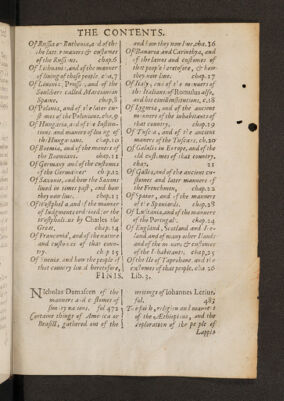 THE CONTENTS.
Of Russia or Ruthenia, and of
the later manners and customes
of the Russians. chap.6
Of Lithuani, and of the manner
of living of those people. cha.7
Of Livonia, Prussi, and of the
Souldiers called Marianes in
Spaine. chap.8
Of Polonia, and of the later cu-
stomes of the Polonians. cha.9
Of Hungaria, and of the Institu-
tions and manners of living of
the Hungarians. chap.10
Of Boemia, and of the maners of
the Boemians. chap.11
Of Germany and of the customes
of the Germaines chap.12
Of Saxonie, and how the Saxons
lived in times past, and how
they now live. chap.13
Of Westphalia and of the manner
of Iudgments ordained for the
Westphalians by Charles the
Great. chap.14
Of Franconia, and of the nature
and customes of that coun-
try. chap.15
Of and how the people of
that country lived heretofore,
and how they now live. cha.16
Of Bavaria and Carinthia, and
of the lawes and customes of
those people heretofore, & how
they now live. chap.17
Of Italy, and of the manners of
the Italians, of Romulus also,
and his civill institutions. c.18
Of Liguria, and of the ancient
manners of the inhabitants of
that country. chap.19
Of Tuscia, and of the ancient
manners of the Tuscans. ch.20
Of Galatia in Europe, and of the
old customes of that country.
chap. 21
Of Gallia, and of the ancient cu-
stomes and later manners of
the Frenchmen, chap.22
Of Spaine, and of the manners
of the Spaniards. chap.23
Of Lusitania, and of the manners
of the Portugals. chap.24
Of England, Scotland and Ire-
land, and of many other Ilands
and of the manners & customes
of the Inhabitants, chap.25
Of the Ile of Taprobane, and the
customes of that people. cha 26
FINIS. Lib.3.
Nicholas Damascen of the
manners and customes of
sundry nations. fol 472
Certaine things of America or
Brasill, gathered out of the
writings of Iohannes Lerius.
fol. 483
The faith, religion and manners
of the Æthiopians, and the
deploration of the people of
Lappia